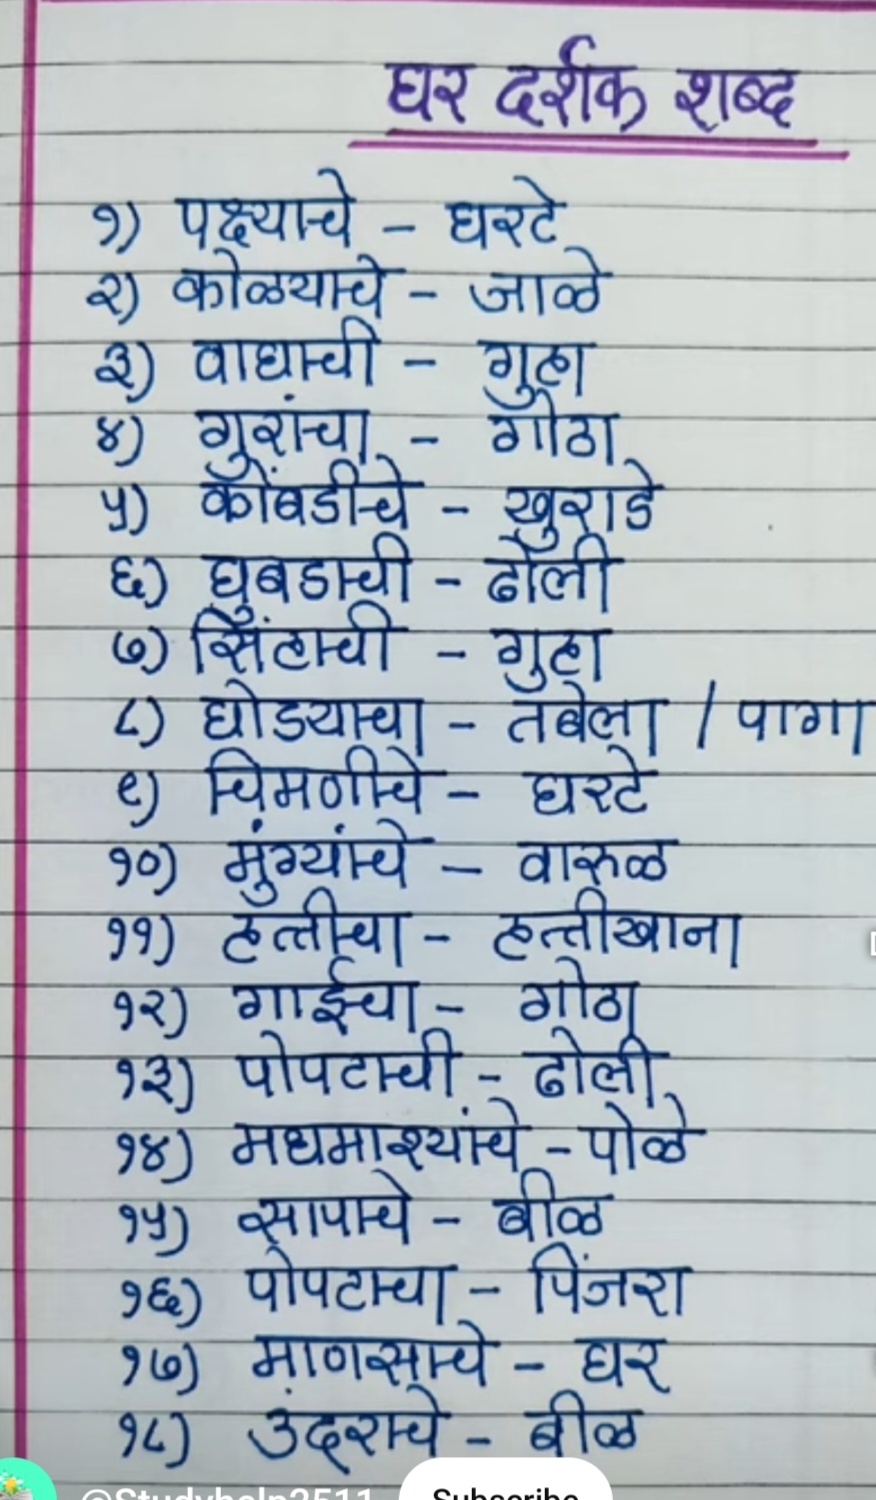 घर दर्शक शब्द
१) पक्ष्याचे - घरटे
२) कोळयाचे - जाळे
३) वाघाची - गुहा
४) गुरांचा - गोठा
५) कोंबडीचे - खुराडे
६) घुबडाची - ढोली
७) सिंहाची - गुहा
८) घोडयाचा - तबेला / पागा
९) चिमणीचे - घरटे
१०) मुंग्यांचे - वारुळ
११) हत्तीचा - हत्तीखाना
१२) गाईचा - गोठा
१३) पोपटाची - ढोली
१४) मधमाश्यांचे - पोळे
१५) सापाचे - बीळ
१६) पोपटाचा - पिंजरा
१७) माणसाचे - घर
१८) उंदराचे - बीळ
@Studyhelp2511 Subscribe